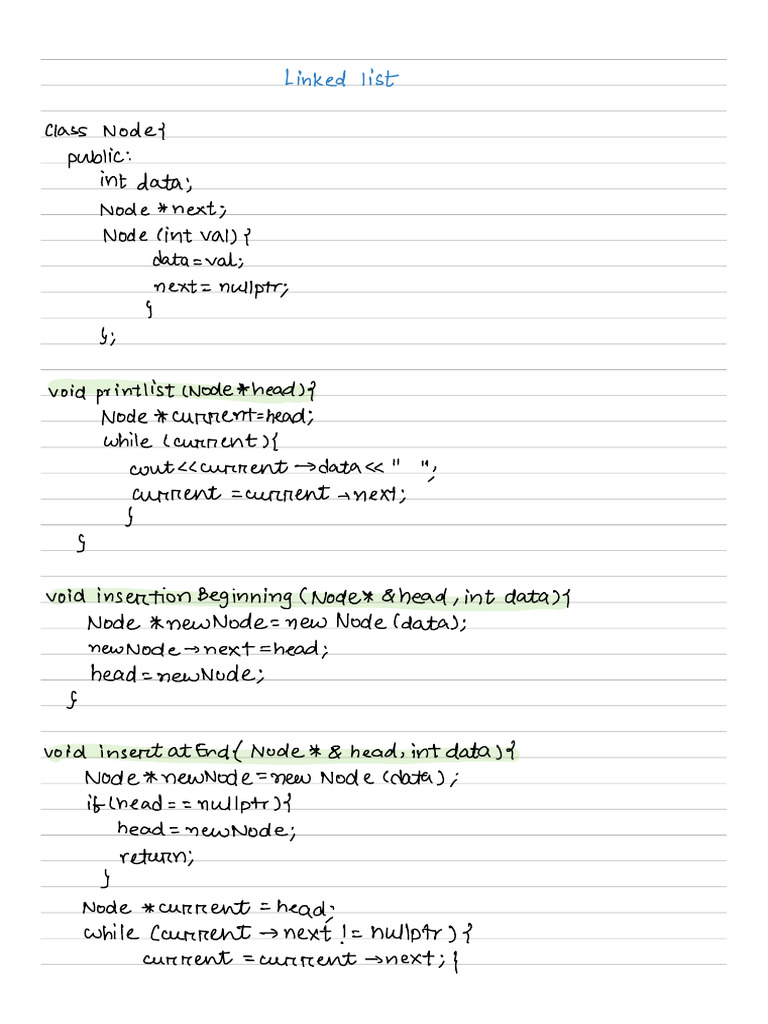 Linked list
class Node{
public:
int data;
Node *next;
Node (int val) {
data=val;
next= nullptr;
}
};
void printlist (Node*head){
Node *current=head;
while (current){
cout<<current →data<< "  ";
current =current →next;
}
}
void insertion Beginning (Node* &head, int data){
Node *newNode=new Node (data);
newNode→next=head;
head=newNode;
}
void insert at End( Node * & head, int data){
Node*newNode=new Node (data);
if(head==nullptr){
head=newNode;
return;
}
Node *current =head;
while (current →next != nullptr){
current =current →next; {